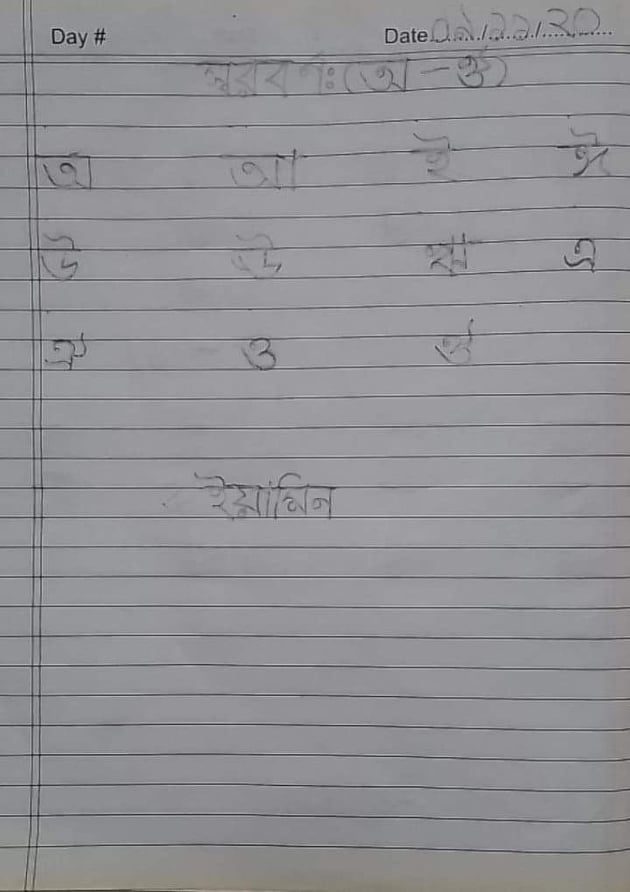 Day #
Date ০৯/১১/২০
স্বরবর্ণঃ(অ-ঔ)
অ আ ই ঈ
উ ঊ ঋ এ
ঐ ও ঔ
ইয়ামিন